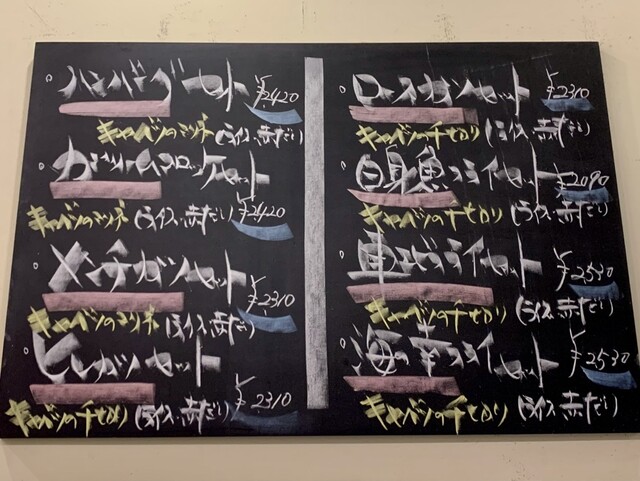 ハンバーグセット ¥2420
キャベツのマリネ (ライス・赤だし)
カニクリームコロッケセット
キャベツのマリネ (ライス・赤だし) ¥2420
メンチカツセット
キャベツのマリネ (ライス・赤だし) ¥2310
ヒレカツセット
キャベツの千切り (ライス・赤だし) ¥2310
ロースカツセット ¥2310
キャベツの千切り (ライス・赤だし)
白身魚フライセット ¥2090
キャベツの千切り (ライス・赤だし)
車エビフライセット ¥2530
キャベツの千切り (ライス・赤だし)
海の幸フライセット ¥2530
キャベツの千切り (ライス・赤だし)